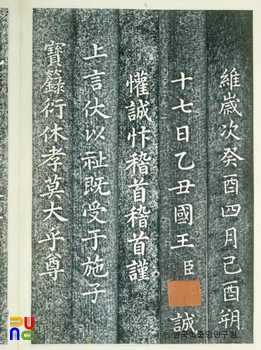 維歲次癸酉四月己酉朔
十七日乙丑國王臣 誠
懽誠忭稽首稽首謹
上言伏以祉旣受于施子
寶籙衍休孝莫大乎尊
한국학중앙연구원